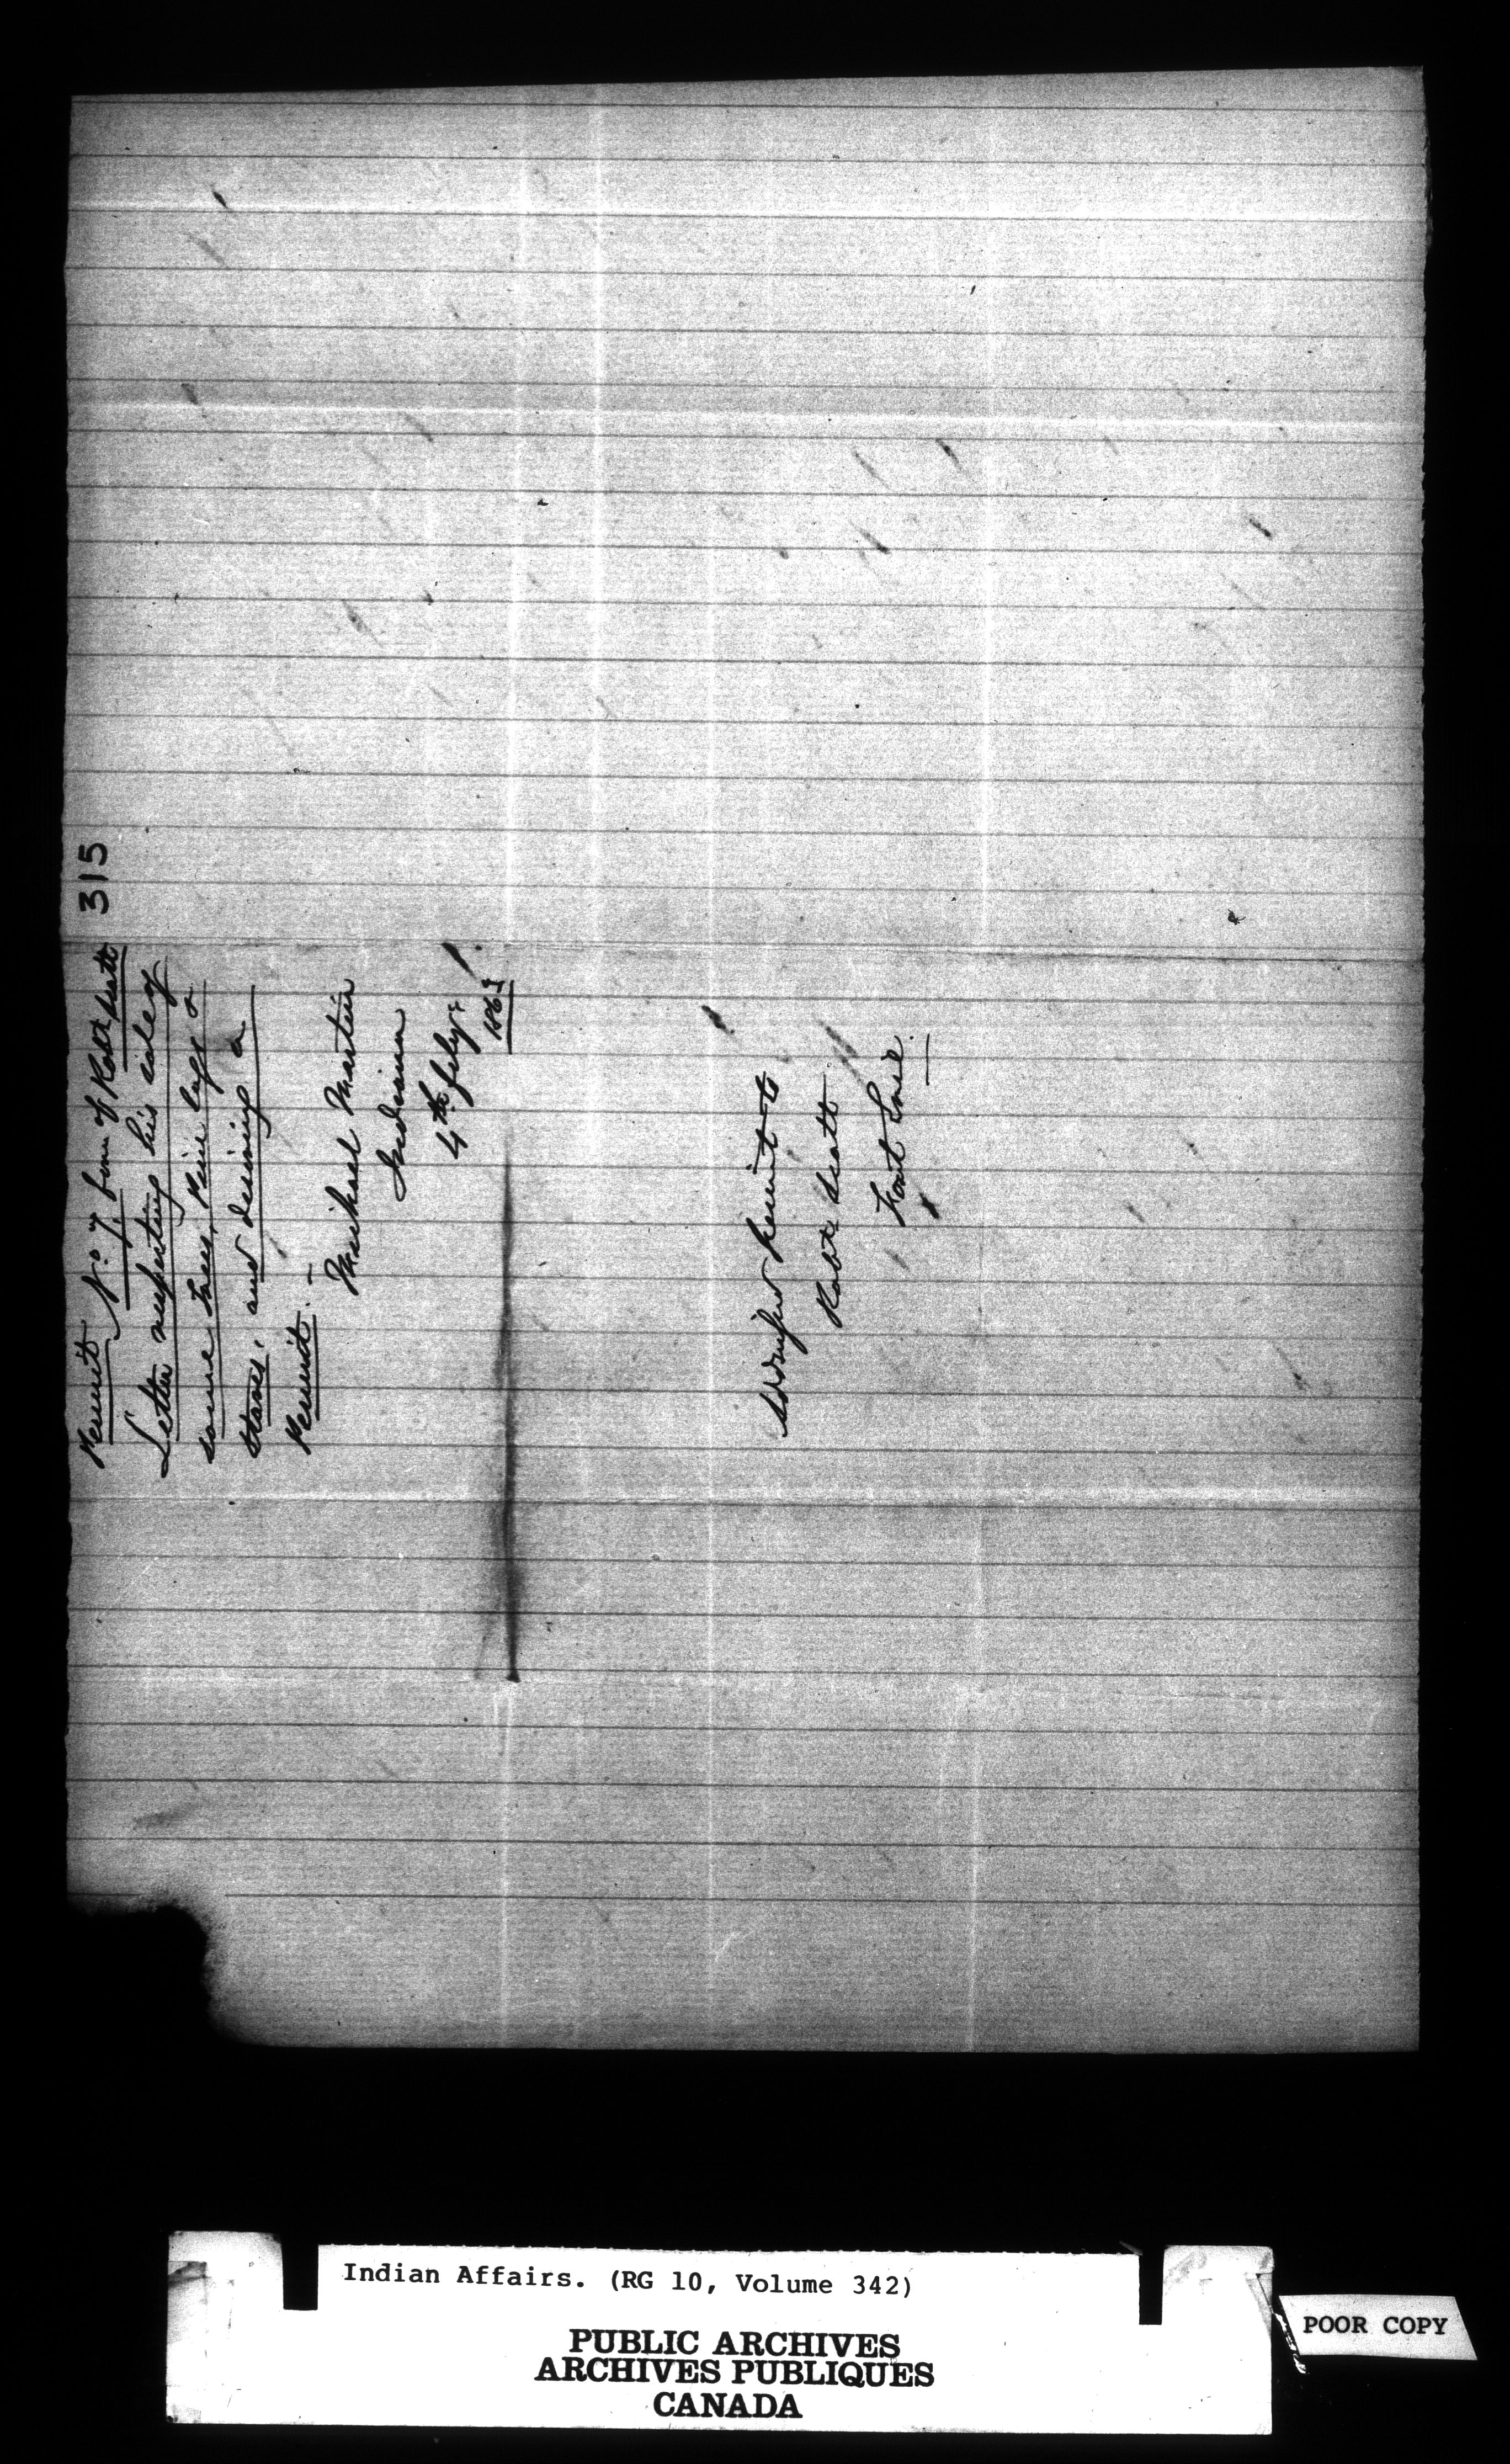 315
Permit No 7 firm of Robt Scott
Letter respecting his sale of
some Trees, Pine logs &
Staves, and desiring a
Permit. —
Michael Martin
Indian
4th Feby:
1863
Address Permit to
Robt Scott
Fort Erie.
Indian Affairs. (RG 10, Volume 342)
PUBLIC ARCHIVES
ARCHIVES PUBLIQUES
CANADA
POOR COPY